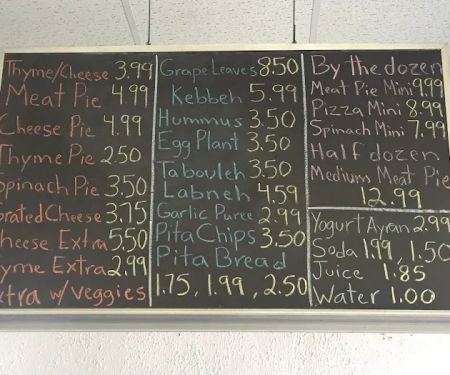 Thyme/Cheese 3.99
Meat Pie 4.99
Cheese Pie 4.99
Thyme Pie 2.50
Spinach Pie 3.50
Cheese 3.75
Cheese Extra 5.50
Extra 2.99
w/ Veggies
Grape Leaves 8.50
Kebbeh 5.99
Hummus 3.50
Egg Plant 3.50
Tabouleh 3.50
Labneh 4.59
Garlic Puree 2.99
Pita Chips 3.50
Pita Bread
1.75, 1.99, 2.50
By the dozen
Meat Pie Mini 9.99
Pizza Mini 8.99
Spinach Mini 7.99
Half dozen
Medium Meat Pie
12.99
Yogurt Ayran 2.99
Soda 1.99, 1.50
Juice 1.85
Water 1.00